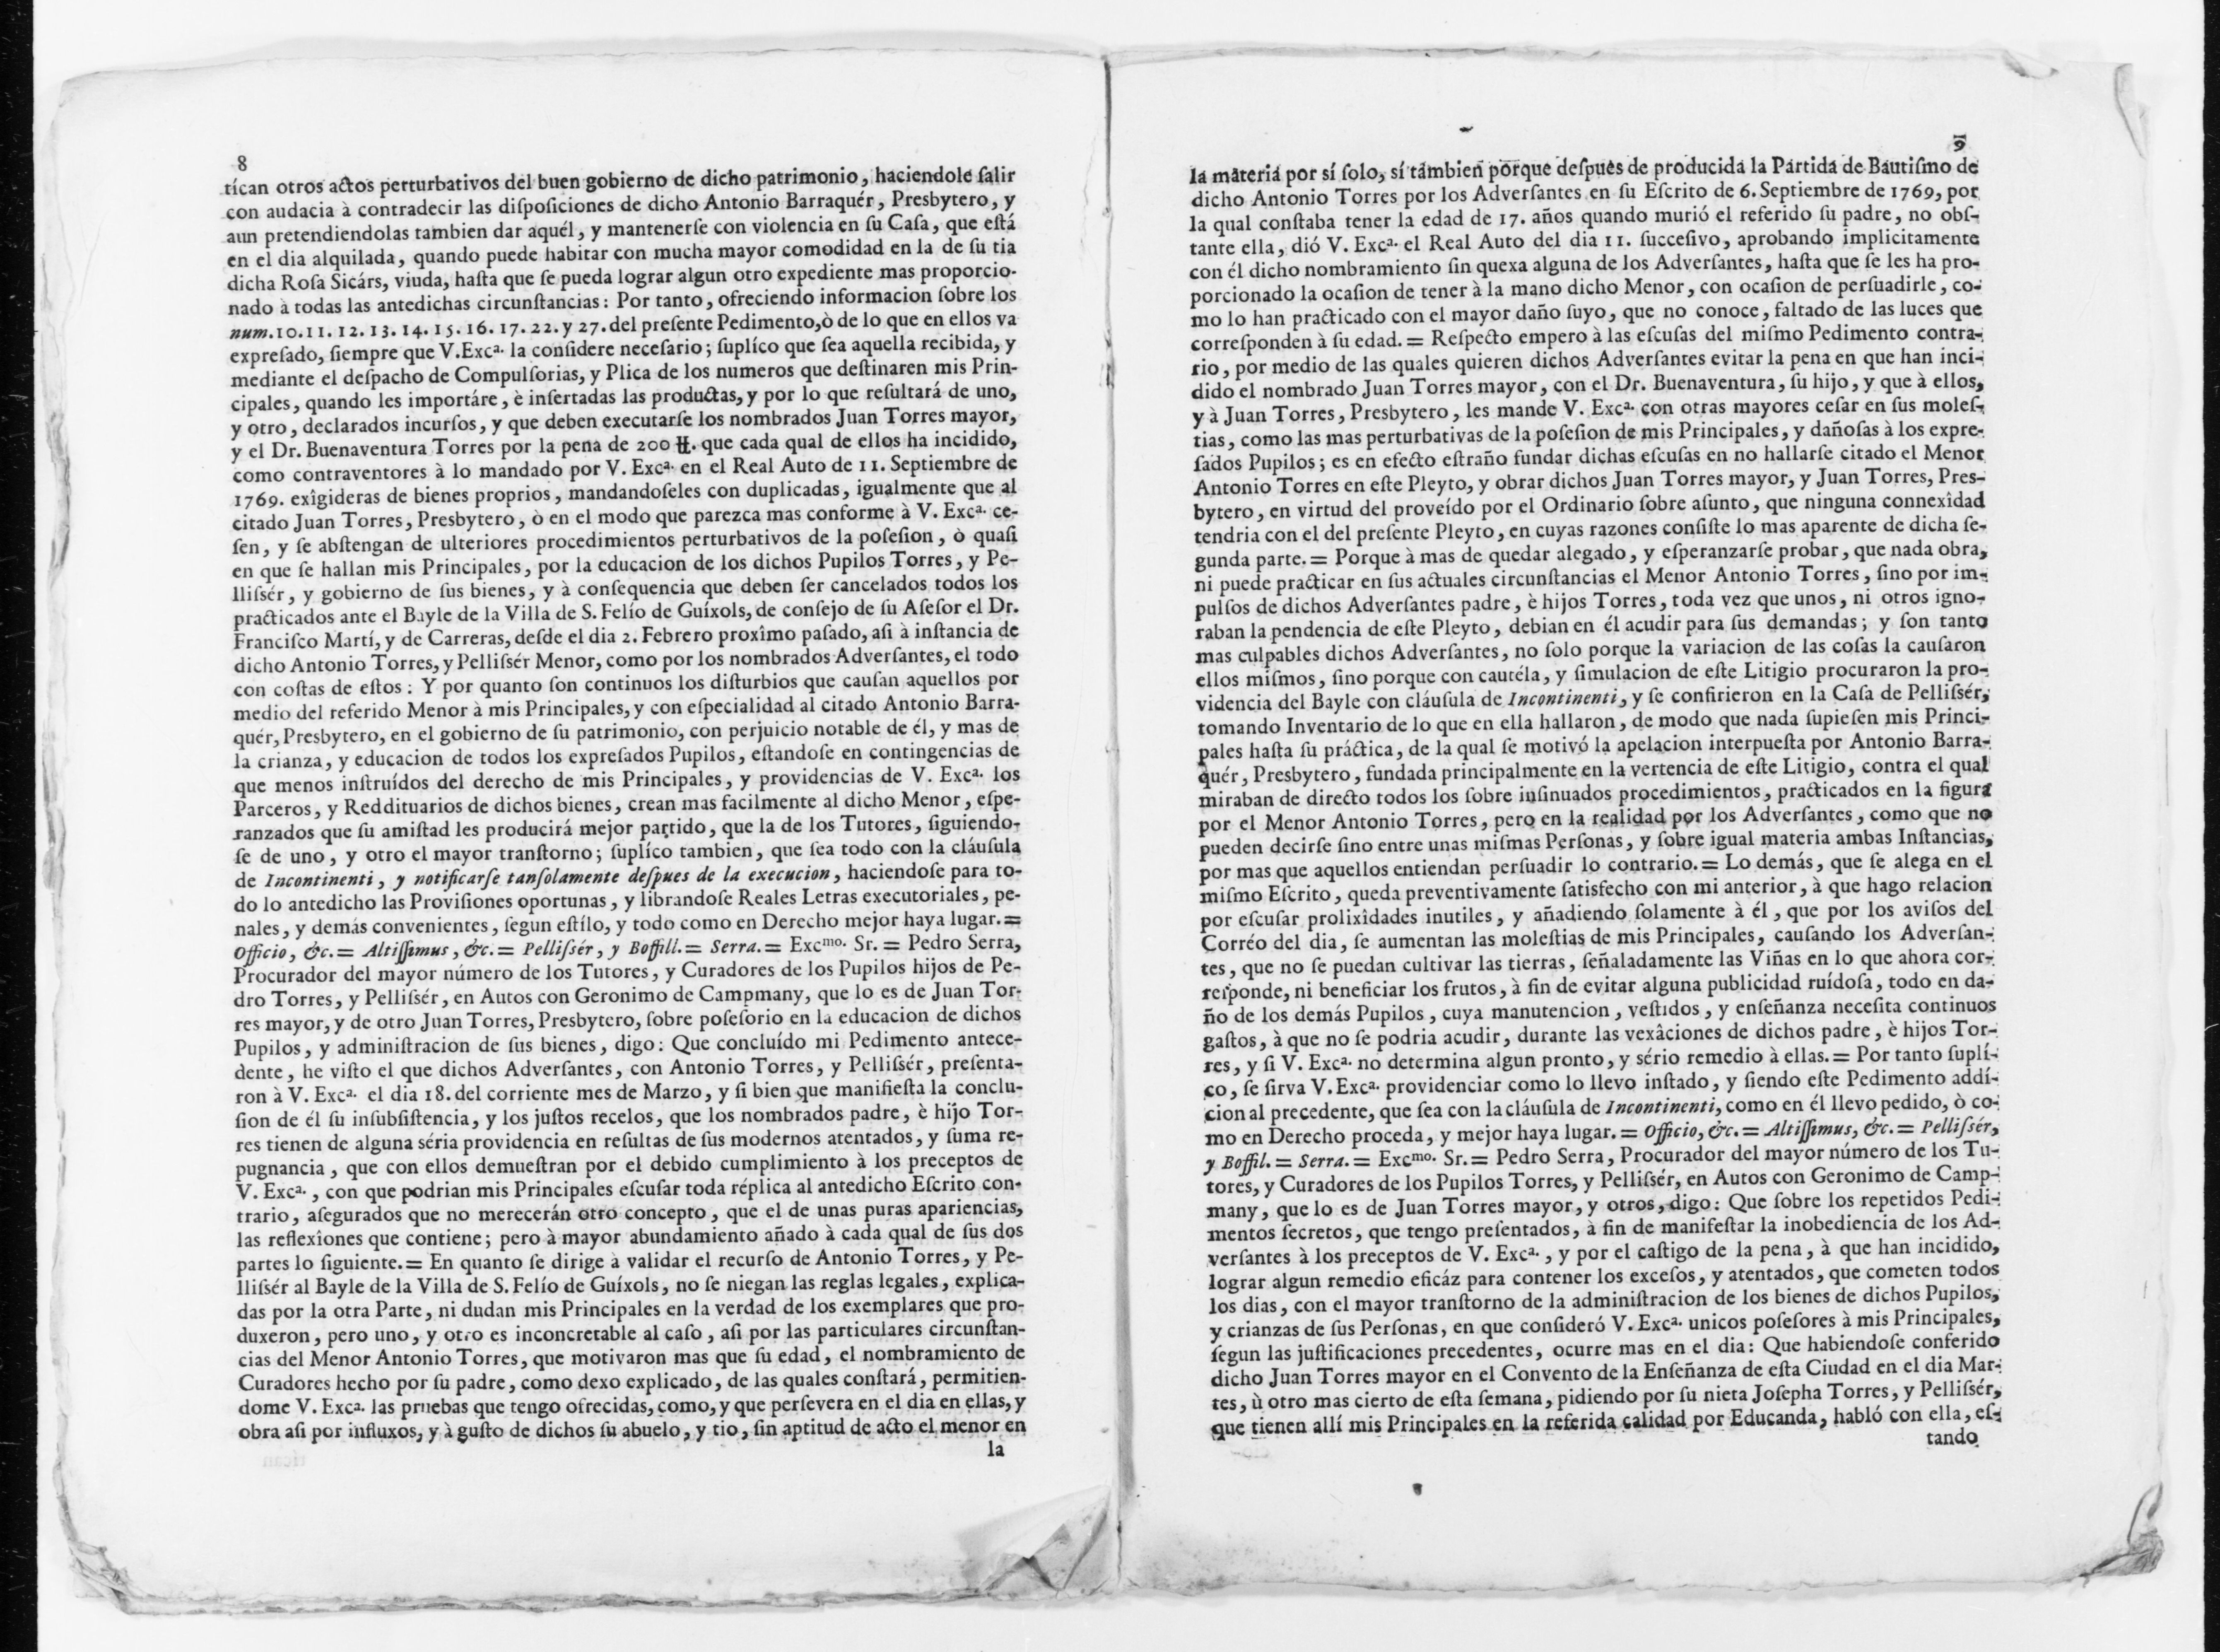 8
tícan otros actos perturbativos del buen gobierno de dicho patrimonio, haciendole ſalir
con audacia à contradecir las diſpoſiciones de dicho Antonio Barraquér, Presbytero, y
aun pretendiendolas tambien dar aquél, y mantenerſe con violencia en ſu Caſa, que eſtá
en el dia alquilada, quando puede habitar con mucha mayor comodidad en la de ſu tia
dicha Roſa Sicárs, viuda, haſta que ſe pueda lograr algun otro expediente mas proporcio-
nado à todas las antedichas circunſtancias: Por tanto, ofreciendo informacion ſobre los
num. 10. 11. 12. 13. 14. 15. 16. 17. 22. y 27. del preſente Pedimento, ò de lo que en ellos va
expreſado, ſiempre que V. Excª. la conſidere neceſario; ſuplíco que ſea aquella recibida, y
mediante el deſpacho de Compulſorias, y Plica de los numeros que deſtinaren mis Prin-
cipales, quando les importáre, è inſertadas las productas, y por lo que reſultará de uno,
y otro, declarados incurſos, y que deben executarſe los nombrados Juan Torres mayor,
y el Dr. Buenaventura Torres por la pena de 200 ℔. que cada qual de ellos ha incidido,
como contraventores à lo mandado por V. Excª. en el Real Auto de 11. Septiembre de
1769. exîgideras de bienes proprios, mandandoſeles con duplicadas, igualmente que al
citado Juan Torres, Presbytero, ò en el modo que parezca mas conforme à V. Excª. ce-
ſen, y ſe abſtengan de ulteriores procedimientos perturbativos de la poſeſion, ò quaſi
en que ſe hallan mis Principales, por la educacion de los dichos Pupilos Torres, y Pe-
lliſsér, y gobierno de ſus bienes, y à conſequencia que deben ſer cancelados todos los
practicados ante el Bayle de la Villa de S. Felío de Guíxols, de conſejo de ſu Aſeſor el Dr.
Franciſco Martí, y de Carreras, deſde el dia 2. Febrero proxîmo paſado, aſi à inſtancia de
dicho Antonio Torres, y Pelliſsér Menor, como por los nombrados Adverſantes, el todo
con coſtas de eſtos: Y por quanto ſon continuos los diſturbios que cauſan aquellos por
medio del referido Menor à mis Principales, y con eſpecialidad al citado Antonio Barra-
quér, Presbytero, en el gobierno de ſu patrimonio, con perjuicio notable de él, y mas de
la crianza, y educacion de todos los expreſados Pupilos, eſtandoſe en contingencias de
que menos inſtruídos del derecho de mis Principales, y providencias de V. Excª. los
Parceros, y Reddituarios de dichos bienes, crean mas facilmente al dicho Menor, eſpe-
ranzados que ſu amiſtad les producirá mejor partido, que la de los Tutores, ſiguiendo-
ſe de uno, y otro el mayor tranſtorno; ſuplíco tambien, que ſea todo con la cláuſula
de Incontinenti, y notificarſe tanſolamente deſpues de la execucion, haciendoſe para to-
do lo antedicho las Proviſiones oportunas, y librandoſe Reales Letras executoriales, pe-
nales, y demás convenientes, ſegun eſtílo, y todo como en Derecho mejor haya lugar. =
Officio, &c. = Altiſſimus, &c. = Pelliſsér, y Boffill. = Serra. = Excmo. Sr. = Pedro Serra,
Procurador del mayor número de los Tutores, y Curadores de los Pupilos hijos de Pe-
dro Torres, y Pelliſsér, en Autos con Geronimo de Campmany, que lo es de Juan Tor-
res mayor, y de otro Juan Torres, Presbytero, ſobre poſeſorio en la educacion de dichos
Pupilos, y adminiſtracion de ſus bienes, digo: Que concluído mi Pedimento antece-
dente, he viſto el que dichos Adverſantes, con Antonio Torres, y Pelliſsér, preſenta-
ron à V. Excª. el dia 18. del corriente mes de Marzo, y ſi bien que manifieſta la conclu-
ſion de él ſu inſubſiſtencia, y los juſtos recelos, que los nombrados padre, è hijo Tor-
res tienen de alguna séria providencia en reſultas de ſus modernos atentados, y ſuma re-
pugnancia, que con ellos demueſtran por el debido cumplimiento à los preceptos de
V. Excª., con que podrian mis Principales eſcuſar toda réplica al antedicho Eſcrito con-
trario, aſegurados que no merecerán otro concepto, que el de unas puras apariencias,
las reflexîones que contiene; pero à mayor abundamiento añado à cada qual de ſus dos
partes lo ſiguiente. = En quanto ſe dirige à validar el recurſo de Antonio Torres, y Pe-
lliſsér al Bayle de la Villa de S. Felío de Guíxols, no ſe niegan las reglas legales, explica-
das por la otra Parte, ni dudan mis Principales en la verdad de los exemplares que pro-
duxeron, pero uno, y otro es inconcretable al caſo, aſi por las particulares circunſtan-
cias del Menor Antonio Torres, que motivaron mas que ſu edad, el nombramiento de
Curadores hecho por ſu padre, como dexo explicado, de las quales conſtará, permitien-
dome V. Excª. las pruebas que tengo ofrecidas, como, y que perſevera en el dia en ellas, y
obra aſi por influxos, y à guſto de dichos ſu abuelo, y tio, ſin aptitud de acto el menor en
la
9
la materia por sí ſolo, sí tambien porque deſpues de producida la Partida de Bautiſmo de
dicho Antonio Torres por los Adverſantes en ſu Eſcrito de 6. Septiembre de 1769, por
la qual conſtaba tener la edad de 17. años quando murió el referido ſu padre, no obſ-
tante ella, dió V. Excª. el Real Auto del dia 11. ſucceſivo, aprobando implicitamente
con él dicho nombramiento ſin quexa alguna de los Adverſantes, haſta que ſe les ha pro-
porcionado la ocaſion de tener à la mano dicho Menor, con ocaſion de perſuadirle, co-
mo lo han practicado con el mayor daño ſuyo, que no conoce, faltado de las luces que
correſponden à ſu edad. = Reſpecto empero à las eſcuſas del miſmo Pedimento contra-
rio, por medio de las quales quieren dichos Adverſantes evitar la pena en que han inci-
dido el nombrado Juan Torres mayor, con el Dr. Buenaventura, ſu hijo, y que à ellos,
y à Juan Torres, Presbytero, les mande V. Excª. con otras mayores ceſar en ſus moleſ-
tias, como las mas perturbativas de la poſeſion de mis Principales, y dañoſas à los expre-
ſados Pupilos; es en efecto eſtraño fundar dichas eſcuſas en no hallarſe citado el Menor
Antonio Torres en eſte Pleyto, y obrar dichos Juan Torres mayor, y Juan Torres, Pres-
bytero, en virtud del proveído por el Ordinario ſobre aſunto, que ninguna connexîdad
tendria con el del preſente Pleyto, en cuyas razones conſiſte lo mas aparente de dicha ſe-
gunda parte. = Porque à mas de quedar alegado, y eſperanzarſe probar, que nada obra,
ni puede practicar en ſus actuales circunſtancias el Menor Antonio Torres, ſino por im-
pulſos de dichos Adverſantes padre, è hijos Torres, toda vez que unos, ni otros igno-
raban la pendencia de eſte Pleyto, debian en él acudir para ſus demandas; y ſon tanto
mas culpables dichos Adverſantes, no ſolo porque la variacion de las coſas la cauſaron
ellos miſmos, ſino porque con cautéla, y ſimulacion de eſte Litigio procuraron la pro-
videncia del Bayle con cláuſula de Incontinenti, y ſe confirieron en la Caſa de Pelliſsér,
tomando Inventario de lo que en ella hallaron, de modo que nada ſupieſen mis Princi-
pales haſta ſu práctica, de la qual ſe motivó la apelacion interpueſta por Antonio Barra-
quér, Presbytero, fundada principalmente en la vertencia de eſte Litigio, contra el qual
miraban de directo todos los ſobre inſinuados procedimientos, practicados en la figura
por el Menor Antonio Torres, pero en la realidad por los Adverſantes, como que no
pueden decirſe ſino entre unas miſmas Perſonas, y ſobre igual materia ambas Inſtancias,
por mas que aquellos entiendan perſuadir lo contrario. = Lo demás, que ſe alega en el
miſmo Eſcrito, queda preventivamente ſatisfecho con mi anterior, à que hago relacion
por eſcuſar prolixîdades inutiles, y añadiendo ſolamente à él, que por los aviſos del
Corréo del dia, ſe aumentan las moleſtias de mis Principales, cauſando los Adverſan-
tes, que no ſe puedan cultivar las tierras, ſeñaladamente las Viñas en lo que ahora cor-
reſponde, ni beneficiar los frutos, à fin de evitar alguna publicidad ruídoſa, todo en da-
ño de los demás Pupilos, cuya manutencion, veſtidos, y enſeñanza neceſita continuos
gaſtos, à que no ſe podria acudir, durante las vexâciones de dichos padre, è hijos Tor-
res, y ſi V. Excª. no determina algun pronto, y sério remedio à ellas. = Por tanto ſuplí-
co, ſe ſirva V. Excª. providenciar como lo llevo inſtado, y ſiendo eſte Pedimento addí-
cion al precedente, que ſea con la cláuſula de Incontinenti, como en él llevo pedido, ò co-
mo en Derecho proceda, y mejor haya lugar. = Officio, &c. = Altiſſimus, &c. = Pelliſsér,
y Boffil. = Serra. = Excmo. Sr. = Pedro Serra, Procurador del mayor número de los Tu-
tores, y Curadores de los Pupilos Torres, y Pelliſsér, en Autos con Geronimo de Camp-
many, que lo es de Juan Torres mayor, y otros, digo: Que ſobre los repetidos Pedi-
mentos ſecretos, que tengo preſentados, à fin de manifeſtar la inobediencia de los Ad-
verſantes à los preceptos de V. Excª., y por el caſtigo de la pena, à que han incidido,
lograr algun remedio eficáz para contener los exceſos, y atentados, que cometen todos
los dias, con el mayor tranſtorno de la adminiſtracion de los bienes de dichos Pupilos,
y crianzas de ſus Perſonas, en que conſideró V. Excª. unicos poſeſores à mis Principales,
ſegun las juſtificaciones precedentes, ocurre mas en el dia: Que habiendoſe conferido
dicho Juan Torres mayor en el Convento de la Enſeñanza de eſta Ciudad en el dia Mar-
tes, ù otro mas cierto de eſta ſemana, pidiendo por ſu nieta Joſepha Torres, y Pelliſsér,
que tienen allí mis Principales en la referida calidad por Educanda, habló con ella, eſ-
tando